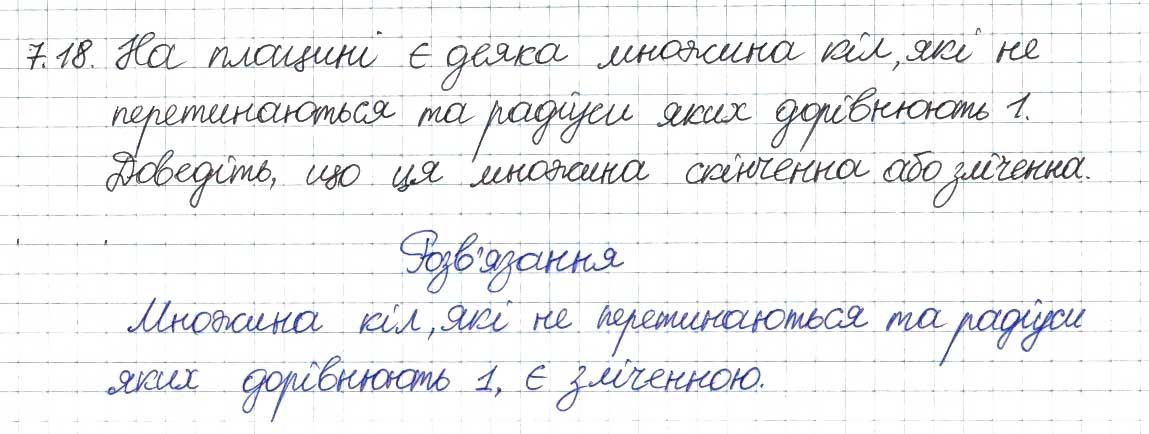 7.18. На площині є деяка множина кіл, які не
перетинаються та радіуси яких дорівнюють 1.
Доведіть, що ця множина скінченна або зліченна.
Розв'язання
Множина кіл, які не перетинаються та радіуси
яких дорівнюють 1, є зліченною.